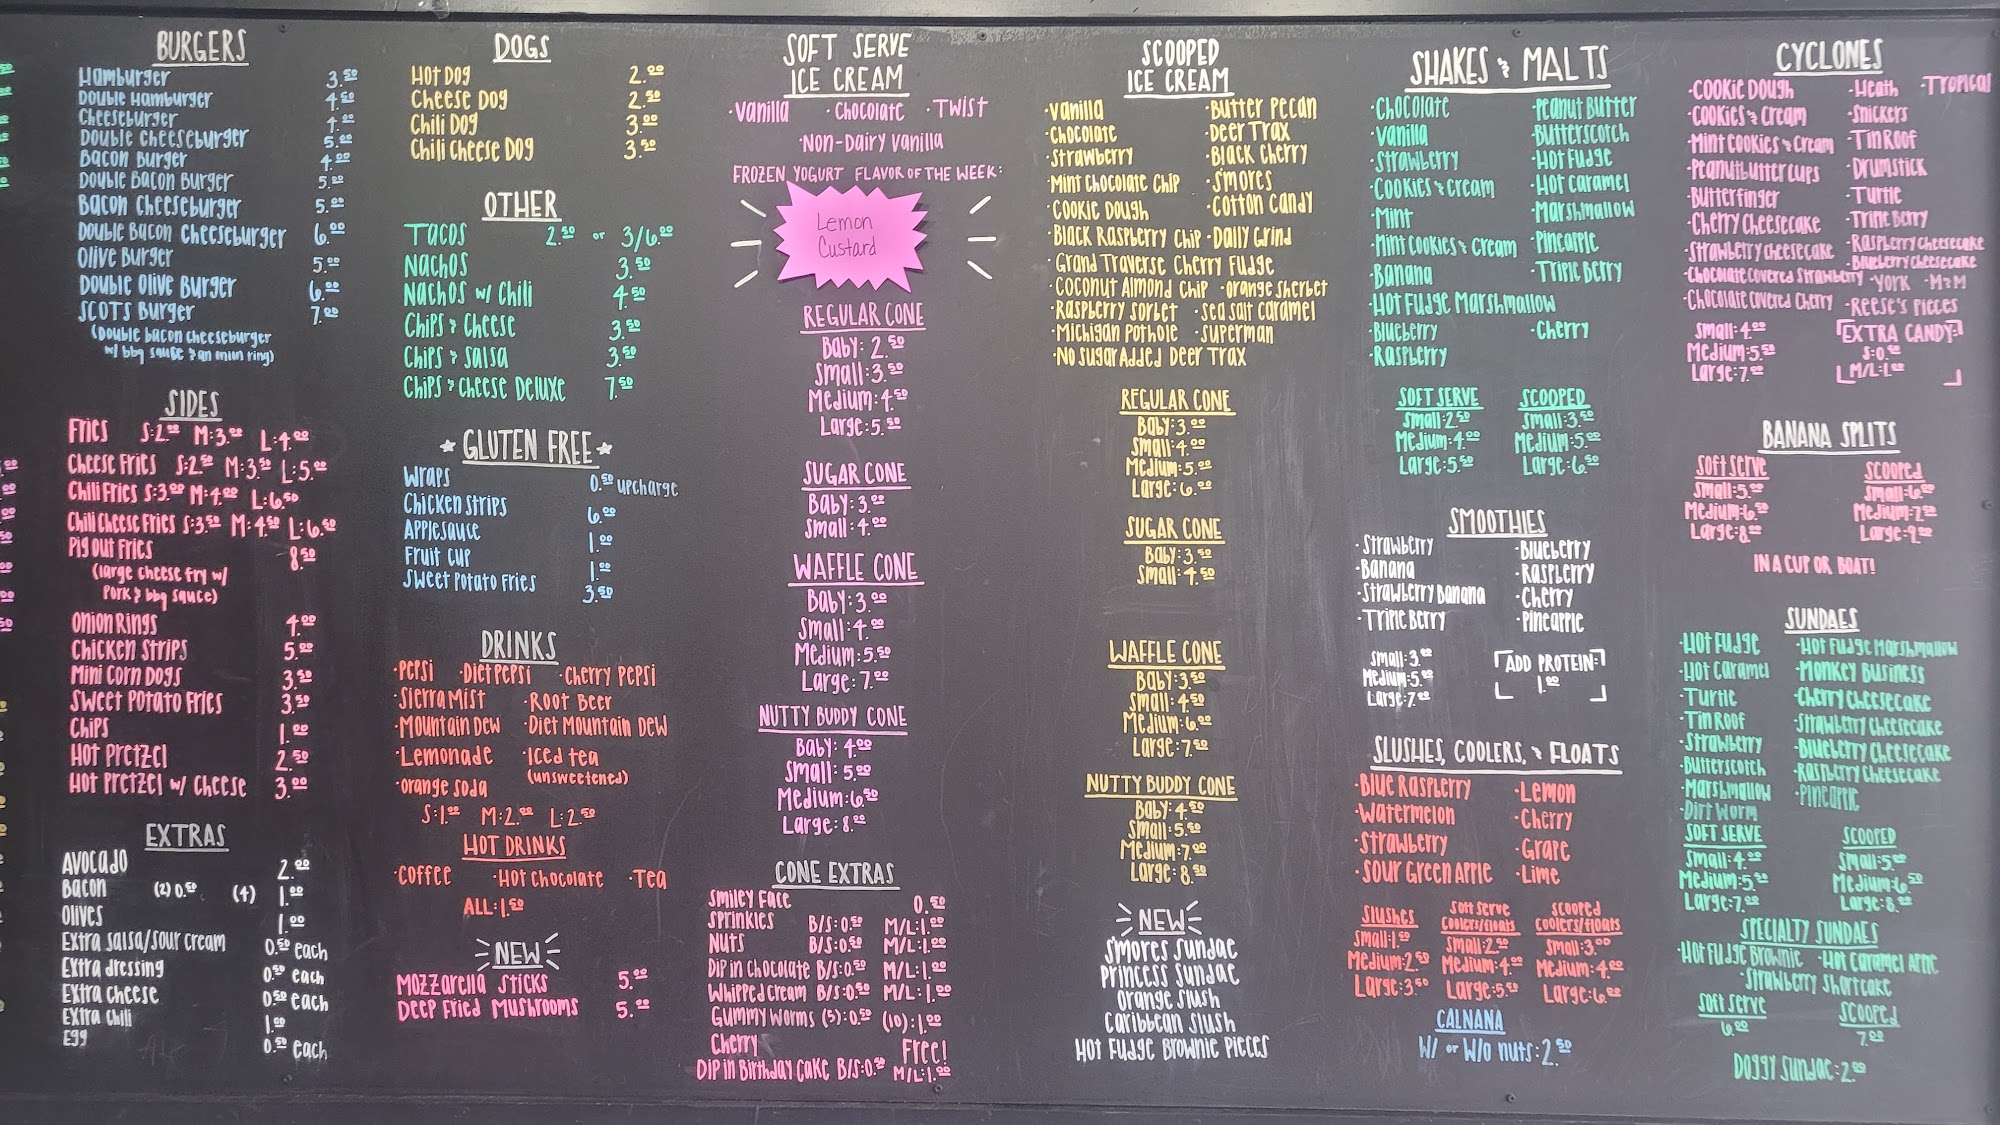 BURGERS
Hamburger 3.50
Double Hamburger 4.50
Cheeseburger 4.00
Double Cheeseburger 5.00
Bacon Burger 4.00
Double Bacon Burger 5.00
Bacon Cheeseburger 5.00
Double Bacon Cheeseburger 6.00
Olive Burger 5.00
Double Olive Burger 6.00
SCOTS Burger 7.00
(Double bacon cheeseburger
w/ bbq sauce & an onion ring)
SIDES
Fries S:2.00 M:3.00 L:4.00
Cheese Fries S:2.50 M:3.50 L:5.00
Chili Fries S:3.00 M:4.00 L:6.50
Chili Cheese Fries S:3.50 M:4.50 L:6.50
Pig out Fries 8.50
(large cheese fry w/
pork & bbq sauce)
Onion Rings 4.00
Chicken Strips 5.00
Mini Corn Dogs 3.50
Sweet Potato Fries 3.50
Chips 1.00
Hot Pretzel 2.50
Hot Pretzel w/ Cheese 3.00
EXTRAS
Avocado 2.00
Bacon (2) 0.50 (4) 1.00
Olives 1.00
Extra salsa/sour cream 0.50 each
Extra dressing 0.50 each
Extra cheese 0.50 each
Extra chili 1.00
Egg 0.50 each
DOGS
Hot Dog 2.00
Cheese Dog 2.50
Chili Dog 3.00
Chili Cheese Dog 3.50
OTHER
Tacos 2.50 or 3/6.00
Nachos 3.50
Nachos w/ Chili 4.50
Chips & Cheese 3.50
Chips & Salsa 3.50
Chips & Cheese Deluxe 7.50
★ GLUTEN FREE ★
Wraps 0.50 upcharge
Chicken Strips 6.00
Applesauce 1.00
Fruit Cup 1.00
Sweet Potato Fries 3.50
DRINKS
·Pepsi ·Diet Pepsi ·Cherry Pepsi
·Sierra Mist ·Root Beer
·Mountain Dew ·Diet Mountain Dew
·Lemonade ·Iced tea
(unsweetened)
·Orange soda
S:1.50 M:2.00 L:2.50
HOT DRINKS
·Coffee ·Hot Chocolate ·Tea
ALL:1.50
NEW
Mozzarella Sticks 5.00
Deep Fried Mushrooms 5.00
SOFT SERVE
ICE CREAM
·Vanilla ·Chocolate ·Twist
·Non-Dairy Vanilla
FROZEN YOGURT FLAVOR OF THE WEEK:
Lemon
Custard
REGULAR CONE
Baby: 2.50
Small: 3.50
Medium: 4.50
Large: 5.50
SUGAR CONE
Baby: 3.00
Small: 4.00
WAFFLE CONE
Baby: 3.00
Small: 4.00
Medium: 5.50
Large: 7.00
NUTTY BUDDY CONE
Baby: 4.00
Small: 5.00
Medium: 6.50
Large: 8.00
CONE EXTRAS
Smiley Face 0.50
Sprinkles B/S:0.50 M/L:1.00
Nuts B/S:0.50 M/L:1.00
Dip in Chocolate B/S:0.50 M/L:1.00
Whipped Cream B/S:0.50 M/L:1.00
Gummy Worms (5):0.50 (10):1.00
Cherry Free!
Dip in Birthday Cake B/S:0.50 M/L:1.00
SCOOPED
ICE CREAM
·Vanilla ·Butter Pecan
·Chocolate ·Deer Trax
·Strawberry ·Black Cherry
·Mint Chocolate Chip ·S'mores
·Cookie Dough ·Cotton Candy
·Black Raspberry Chip ·Daily Grind
·Grand Traverse Cherry Fudge
·Coconut Almond Chip ·Orange Sherbet
·Raspberry Sorbet ·Sea Salt Caramel
·Michigan Pothole ·Superman
·No Sugar Added Deer Trax
REGULAR CONE
Baby: 3.00
Small: 4.00
Medium: 5.00
Large: 6.00
SUGAR CONE
Baby: 3.50
Small: 4.50
WAFFLE CONE
Baby: 3.50
Small: 4.50
Medium: 6.00
Large: 7.50
NUTTY BUDDY CONE
Baby: 4.50
Small: 5.50
Medium: 7.00
Large: 8.50
NEW
S'mores Sundae
Princess Sundae
Orange Slush
Caribbean Slush
Hot Fudge Brownie Pieces
SHAKES & MALTS
·Chocolate ·Peanut Butter
·Vanilla ·Butterscotch
·Strawberry ·Hot Fudge
·Cookies & Cream ·Hot Caramel
·Mint ·Marshmallow
·Mint Cookies & Cream ·Pineapple
·Banana ·Triple Berry
·Hot Fudge Marshmallow
·Blueberry ·Cherry
·Raspberry
SOFT SERVE SCOOPED
Small:2.50 Small:3.50
Medium:4.00 Medium:5.00
Large:5.50 Large:6.50
SMOOTHIES
·Strawberry ·Blueberry
·Banana ·Raspberry
·Strawberry Banana ·Cherry
·Triple Berry ·Pineapple
Small:3.00
Medium:5.00
Large:7.00
ADD PROTEIN:
1.00
SLUSHES, COOLERS, & FLOATS
·Blue Raspberry ·Lemon
·Watermelon ·Cherry
·Strawberry ·Grape
·Sour Green Apple ·Lime
Slushes Soft Serve coolers/floats Scooped coolers/floats
Small:1.50 Small:2.50 Small:3.00
Medium:2.50 Medium:4.00 Medium:4.00
Large:3.50 Large:5.50 Large:6.00
CALNANA
W/ or W/O nuts:2.50
CYCLONES
·Cookie Dough ·Heath ·Tropical
·Cookies & Cream ·Snickers
·Mint Cookies & Cream ·Tin Roof
·Peanutbuttercups ·Drumstick
·Butterfinger ·Turtle
·Cherry Cheesecake ·Triple Berry
·Strawberry Cheesecake ·Raspberry Cheesecake
·Blueberry Cheesecake
·Chocolate Covered Strawberry ·York ·M&M
·Chocolate Covered Cherry ·Reese's Pieces
Small:4.00
Medium:5.50
Large:7.00
EXTRA CANDY:
S:0.50
M/L:1.00
BANANA SPLITS
Soft Serve Scooped
Small:5.00 Small:6.00
Medium:6.50 Medium:7.50
Large:8.00 Large:9.50
IN A CUP OR BOAT!
SUNDAES
·Hot Fudge ·Hot Fudge Marshmallow
·Hot Caramel ·Monkey Business
·Turtle ·Cherry Cheesecake
·Tin Roof ·Strawberry Cheesecake
·Strawberry ·Blueberry Cheesecake
·Butterscotch ·Raspberry Cheesecake
·Marshmallow ·Pineapple
·Dirt Worm
SOFT SERVE SCOOPED
Small:4.00 Small:5.00
Medium:5.50 Medium:6.50
Large:7.00 Large:8.00
SPECIALTY SUNDAES
·Hot Fudge Brownie ·Hot Caramel Apple
·Strawberry Shortcake
SOFT SERVE SCOOPED
6.00 7.00
Doggy Sundae:2.00